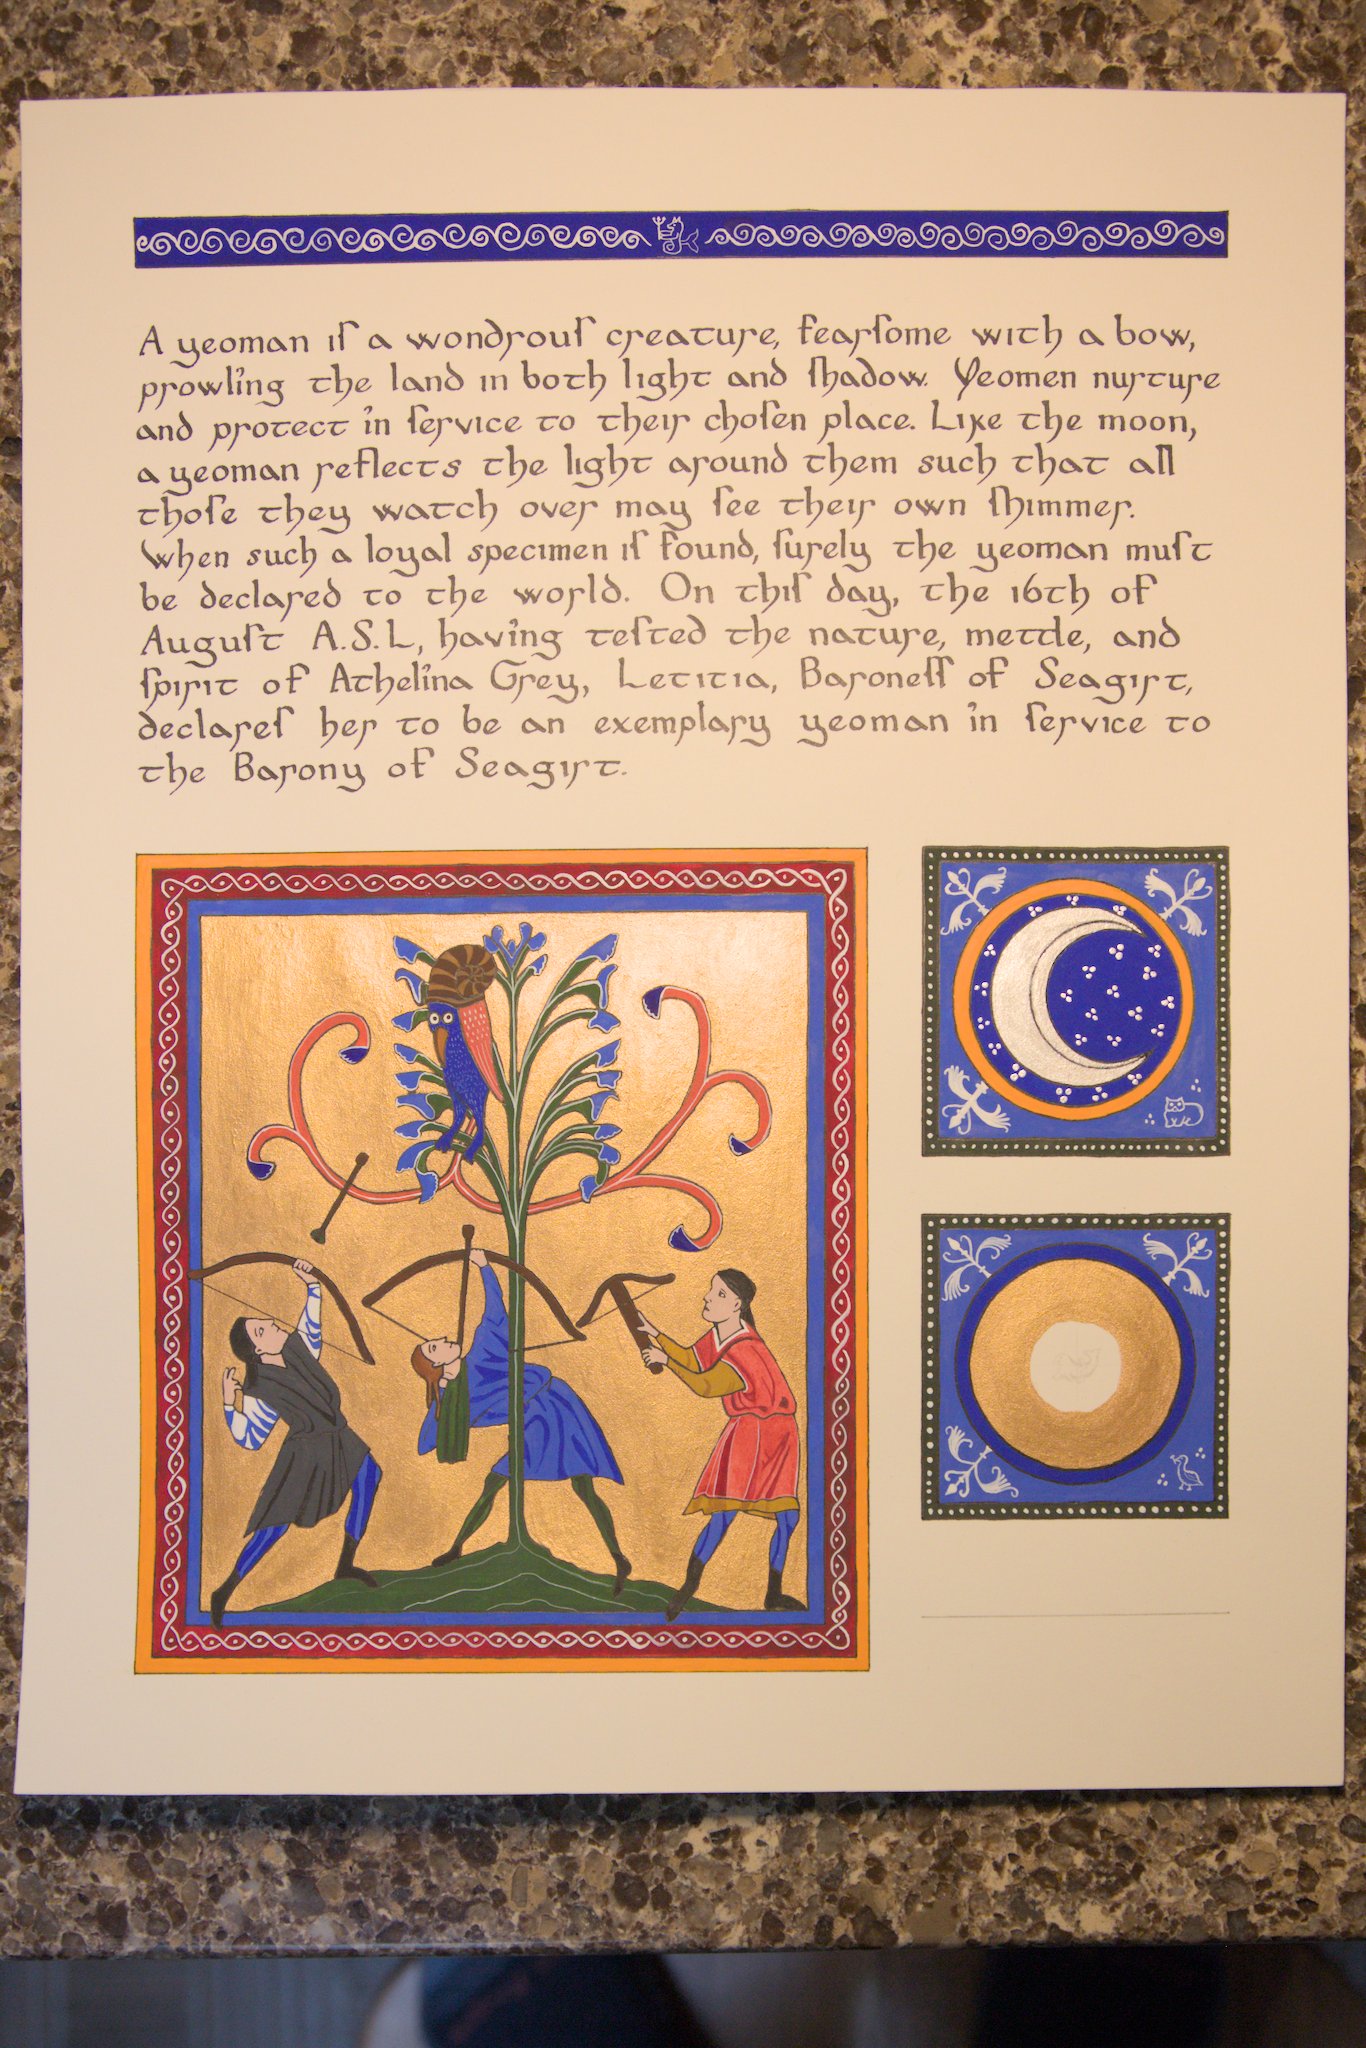 A yeoman is a wondrous creature, fearsome with a bow,
prowling the land in both light and shadow. Yeomen nurture
and protect in service to their chosen place. Like the moon,
a yeoman reflects the light around them such that all
those they watch over may see their own shimmer.
When such a loyal specimen is found, surely the yeoman must
be declared to the world. On this day, the 16th of
August A.S. L, having tested the nature, mettle, and
spirit of Athelina Grey, Letitia, Baroness of Seagirt,
declares her to be an exemplary yeoman in service to
the Barony of Seagirt.